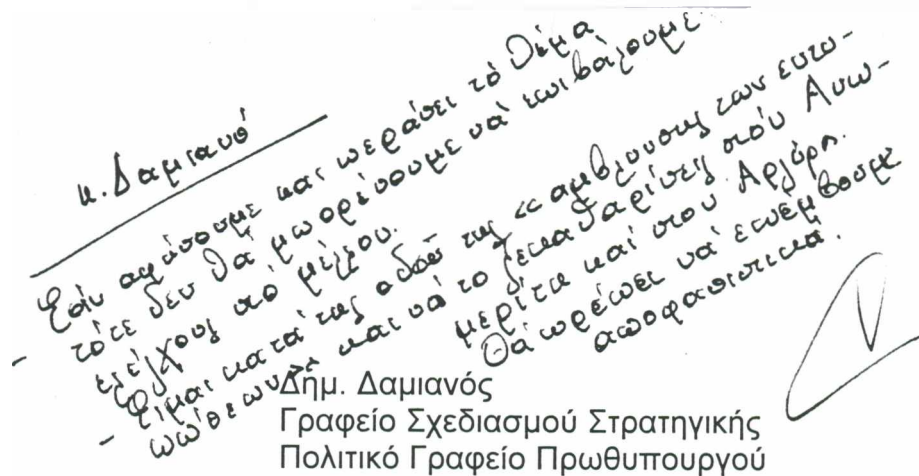 κ. Δαμιανό
- Εάν αφήσουμε και περάσει τό θέμα
τότε δεν θά μπορέσουμε νά επιβάλουμε
ελέγχους στό μέλλον.
- Είμαι κατά της οδού της «αμβλυνσης των εντυ-
πώσεων» και νά το ξεκαθαρίσεις στόν Αυω-
μερίτη καί στον Αργύρη.
Θά πρέπει νά επέμβουμε
αποφασιστικά.
Δημ. Δαμιανός
Γραφείο Σχεδιασμού Στρατηγικής
Πολιτικό Γραφείο Πρωθυπουργού